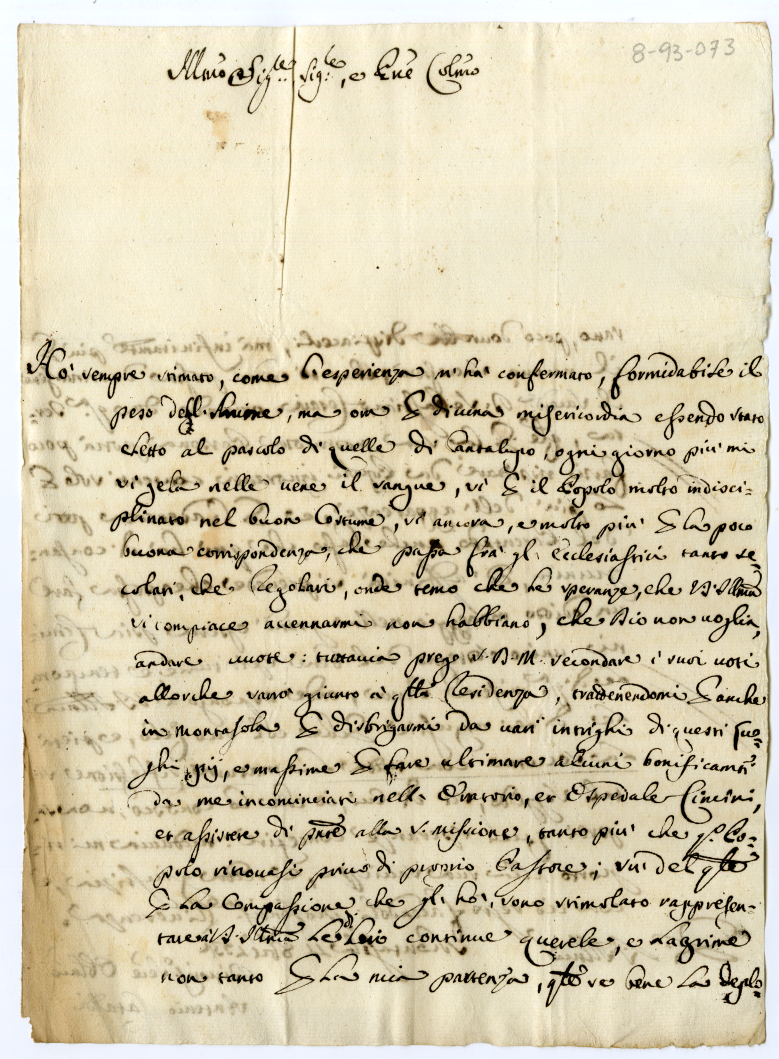 8-93-073
Illmo Sig.re Sig.re, e Pne Colmo
Hò sempre stimato, come l'esperienza m'hà confermato, formidabile il
peso dell'Anime, ma ora p divina misericordia essendo stato
eletto al pascolo di quelle di Cantalupo, ogni giorno più mi
si gela nelle vene il sangue, sì p il Popolo molto indisci=
plinato nel buon Costume, sì ancora, e molto più p la poco
buona corrispondenza, che passa frà gl'Ecclesiastici tanto se=
colari, che Regolari, onde temo che le speranze, che V.S.Illma
si compiace accennarmi non habbiano, che Dio non voglia,
andare vuote: tuttavia prego S.D.M. secondare i suoi voti
allorche sarrò giunto à qsta Residenza, trattenendomi p anche
in Montasola p disbrigarmi da varî intrighi di questi luo=
ghi pij, e massime p fare ultimare alcuni bonificamti
da me incominciati nell'Oratorio, et Ospedale Cimini,
et assistere di pnte alla S. Missione, tanto più che qo Po=
polo ritrovasi privo di proprio Pastore; sù del qle
p la Compassione che gli hò, sono stimolato rappresen=
tare à V.S.Illma le di loro continue querele, e lagrime
non tanto p la mia partenza, qle se bene la deplo=